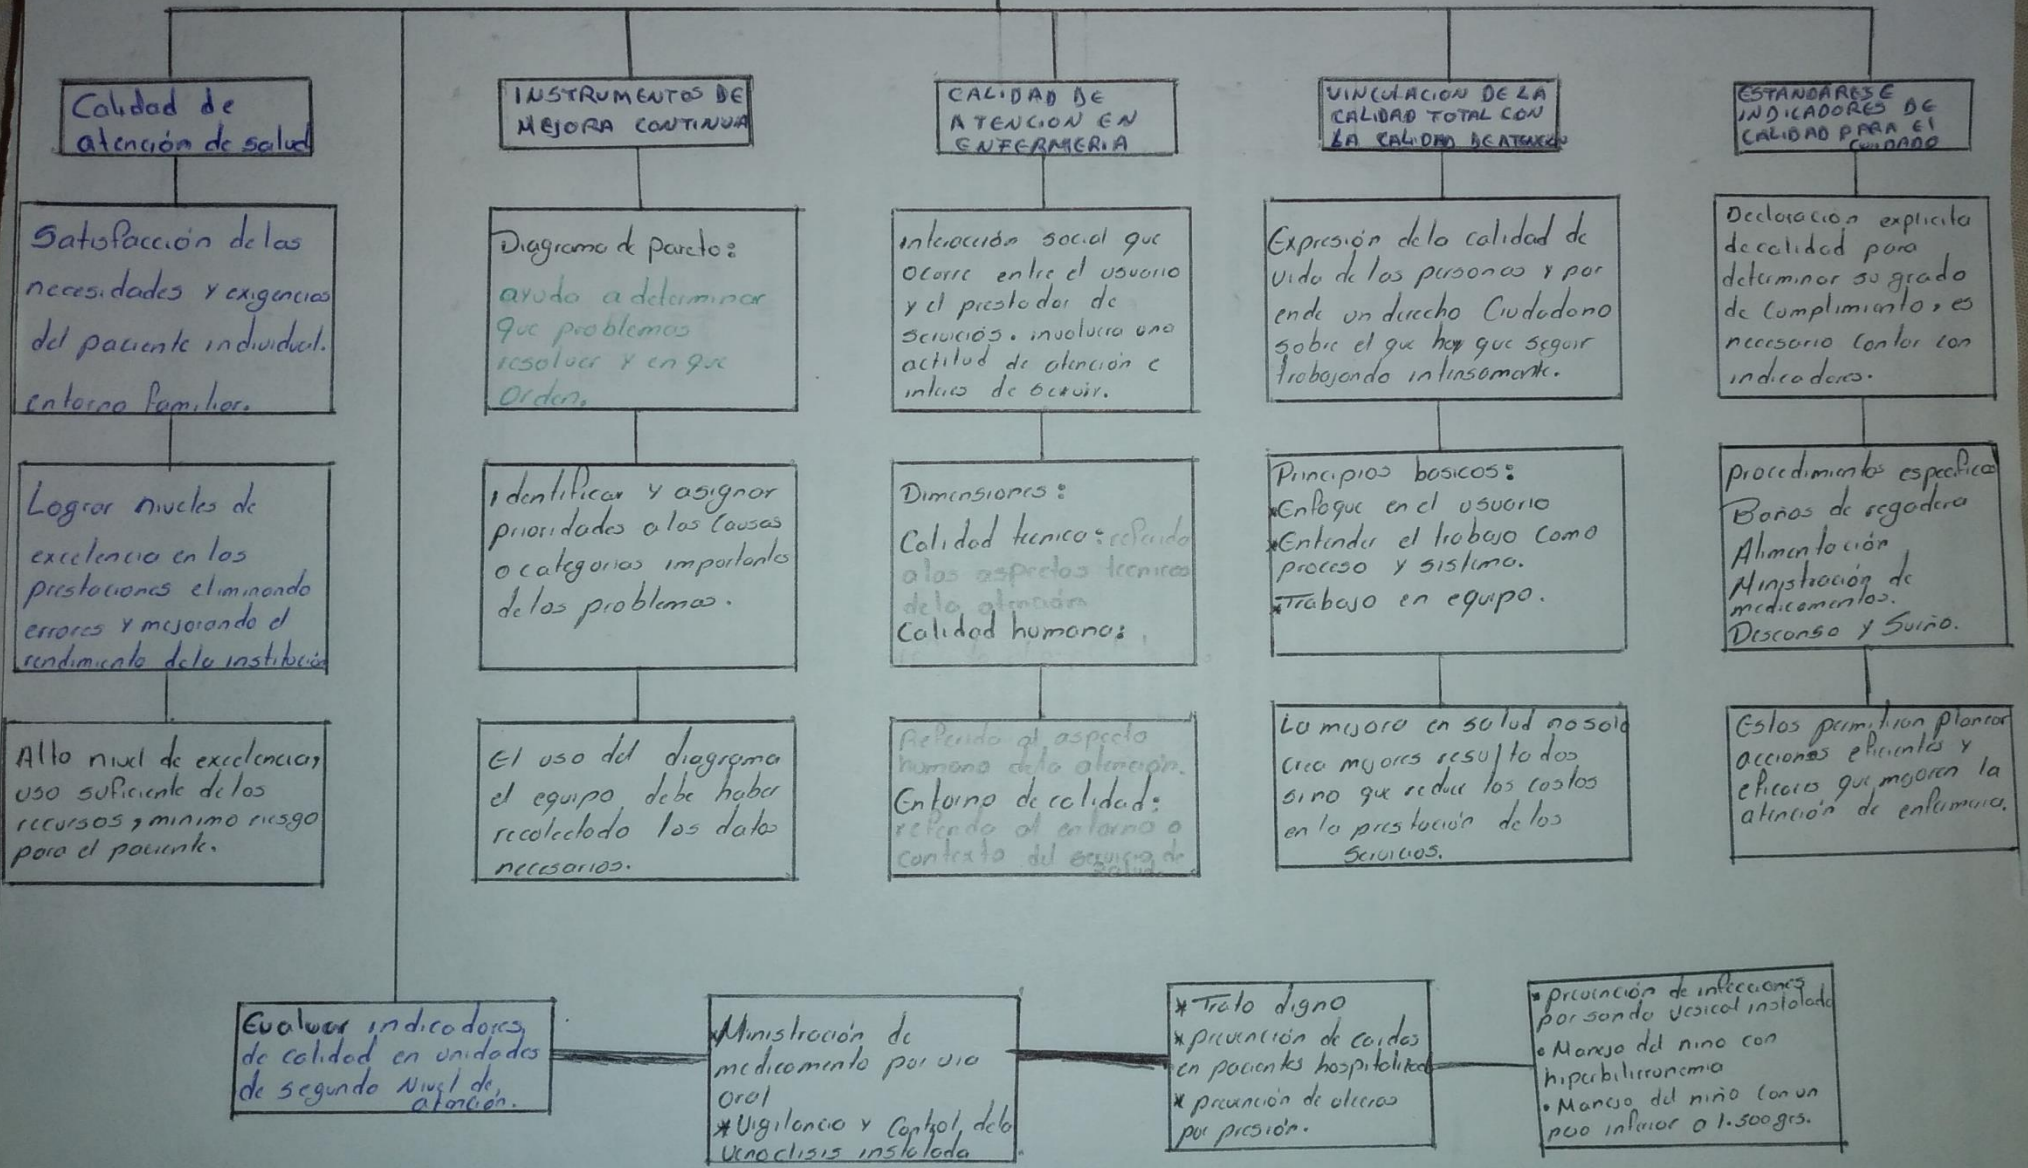 Calidad de
atención de salud
Satisfacción de las
necesidades y exigencias
del paciente individual.
entorno familiar.
Lograr niveles de
excelencia en las
prestaciones eliminando
errores y mejorando el
rendimiento de la institución
Alto nivel de excelencia,
uso suficiente de los
recursos, minimo riesgo
para el paciente.
INSTRUMENTOS DE
MEJORA CONTINUA
Diagrama de pareto:
ayuda a determinar
que problemas
resolver y en que
Orden.
identificar y asignar
prioridades a las causas
o categorias importantes
de los problemas.
El uso del diagrama
el equipo debe haber
recolectado los datos
necesarios.
CALIDAD DE
ATENCION EN
ENFERMERIA
interacción social que
ocurre entre el usuario
y el prestador de
servicios. involucra una
actitud de atención e
interes de servir.
Dimensiones:
Calidad tecnica: referido
a los aspectos tecnicos
de la atención
Calidad humana:
Referido al aspecto
humano de la atención.
Entorno de calidad:
referido al entorno o
contexto del servicio de
salud.
VINCULACION DE LA
CALIDAD TOTAL CON
LA CALIDAD DE ATENCION
Expresión de la calidad de
vida de las personas y por
ende un derecho Ciudadano
sobre el que hay que seguir
trabajando intensamente.
Principios basicos:
*Enfoque en el usuario
*Entender el trabajo como
proceso y sistema.
*Trabajo en equipo.
La mejora en salud no solo
crea mejores resultados
sino que reduce los costos
en la prestación de los
servicios.
ESTANDARES E
INDICADORES DE
CALIDAD PARA El
CUIDADO
Declaración explicita
de calidad para
determinar su grado
de Cumplimiento, es
necesario contar con
indicadores.
procedimientos especificos
Baños de regadera
Alimentación
Ministración de
medicamentos.
Descanso y Sueño.
Estos permitiran plantear
acciones eficientes y
eficaces que mejoren la
atención de enfermeria.
Evaluar indicadores
de calidad en unidades
de segundo Nivel de
atención.
*Ministración de
medicamento por via
oral
*Vigilancia y Control de la
venoclisis instalada
* Trato digno
* prevención de caidas
en pacientes hospitalizados
* prevención de ulceras
por presión.
• prevención de infecciones
por sonda vesical instalada
• Manejo del nino con
hiperbilirronemia
• Manejo del niño con un
peso inferior a 1.500grs.